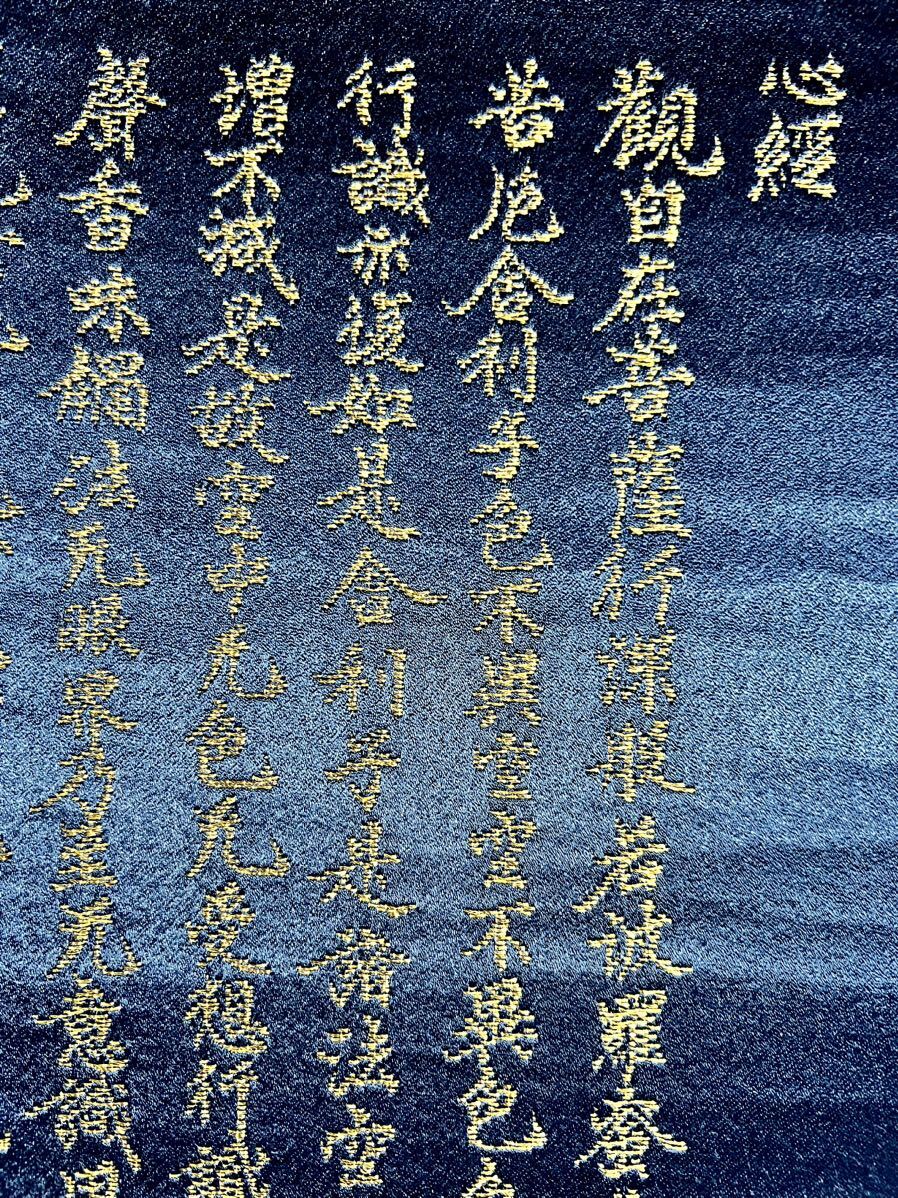 心經
觀自在菩薩行深般若波羅蜜
苦厄舍利子色不異空空不異色
行識亦復如是舍利子是諸法空
增不減是故空中无色无受想行識
聲香味觸法无眼界乃至无意識界